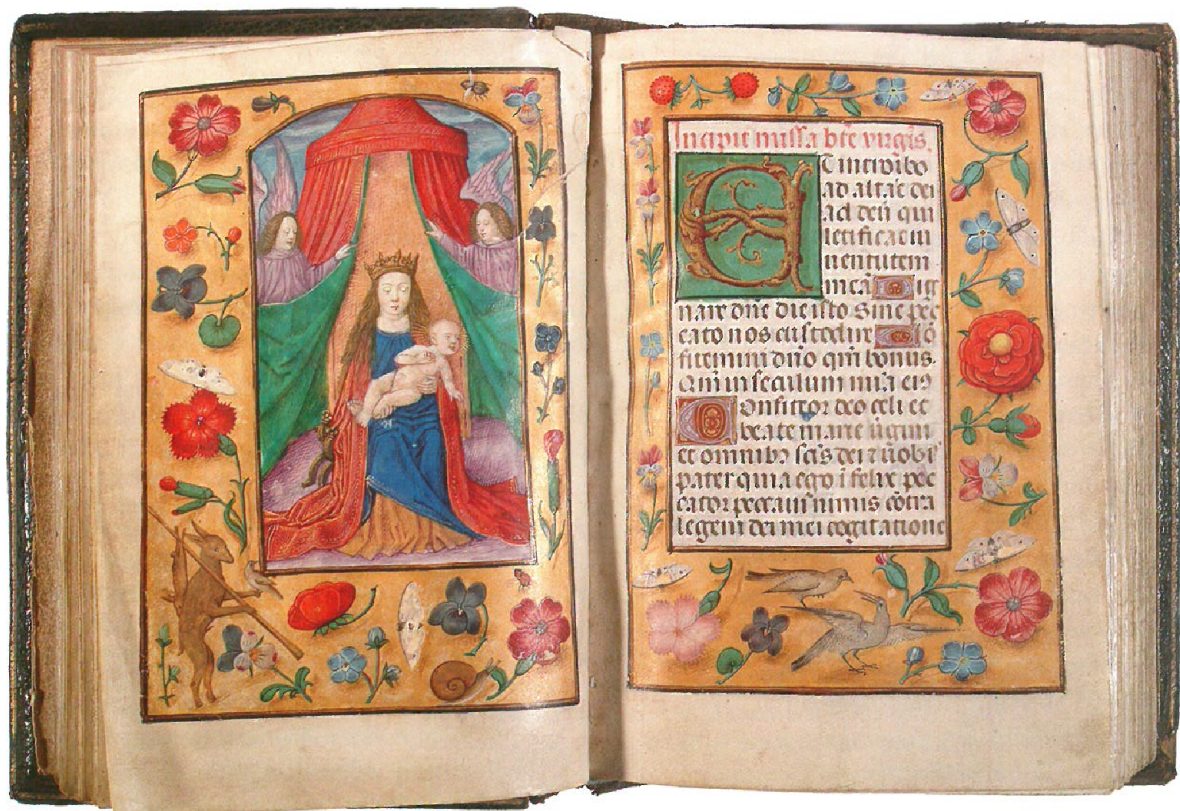 Incipit missa bt̄e virgīs.
Et introibo
ad altar̄e dei
ad deū qui
letificat iu
uentutem
meā Dig
nare dn̄e die isto Sine pec
cato nos custodire Cō
fitemini dn̄o qm̄ bonus.
Qm̄ in seculum mīa eiꝰ
Confiteor deo celi et
beate marie v̄gini
et omnibꝫ sc̄is dei ⁊ vobis
pater quia ego ī felix pec
cator peccaui nimis cōtra
legem dei mei cogitatione